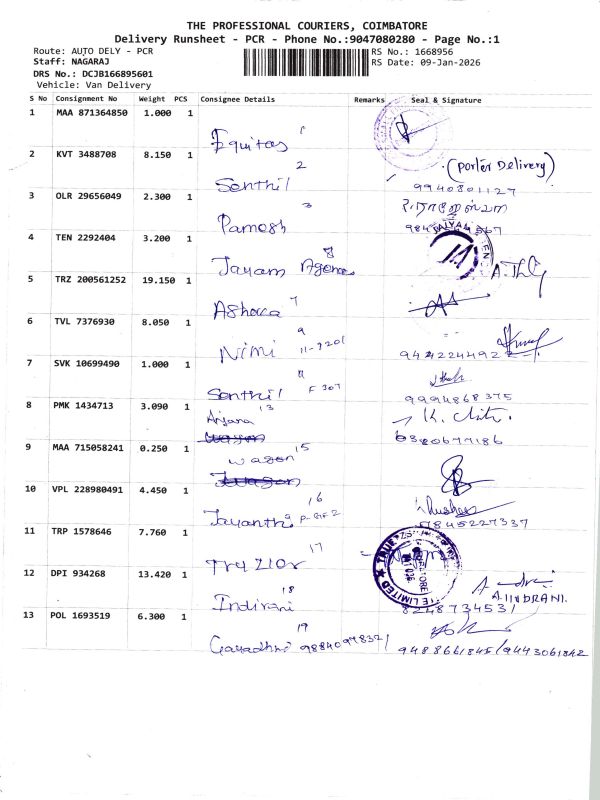 THE PROFESSIONAL COURIERS, COIMBATORE
Delivery Runsheet - PCR - Phone No.:9047080280 - Page No.:1
Route: AUTO DELY - PCR
RS No.: 1668956
Staff: NAGARAJ
RS Date: 09-Jan-2026
DRS No.: DCJB166895601
Vehicle: Van Delivery
S No Consignment No Weight PCS Consignee Details Remarks Seal & Signature
1 MAA 871364850 1.000 1
Equitas 1
2 KVT 3488708 8.150 1
Senthil 2 (Porter Delivery)
9940801127
3 OLR 29656049 2.300 1
Pamesh 3
4 TEN 2292404 3.200 1
Jayam Agence 8
5 TRZ 200561252 19.150 1
Ashoka 7
6 TVL 7376930 8.050 1
Nimi 9 11-9201
9442244922
7 SVK 10699490 1.000 1
Senthil 11 F 307
9994868375
8 PMK 1434713 3.090 1
Anjana 13
K. Chitr.
6380677186
9 MAA 715058241 0.250 1
wagon 15
10 VPL 228980491 4.450 1
Jayanthi 16
7845227337
11 TRP 1578646 7.760 1
Truzlor 17
12 DPI 934268 13.420 1
Indirani 18
8248734531
A. INDRANI.
13 POL 1693519 6.300 1
Gayadhri 19 9884099832/
9488661845/9443061842